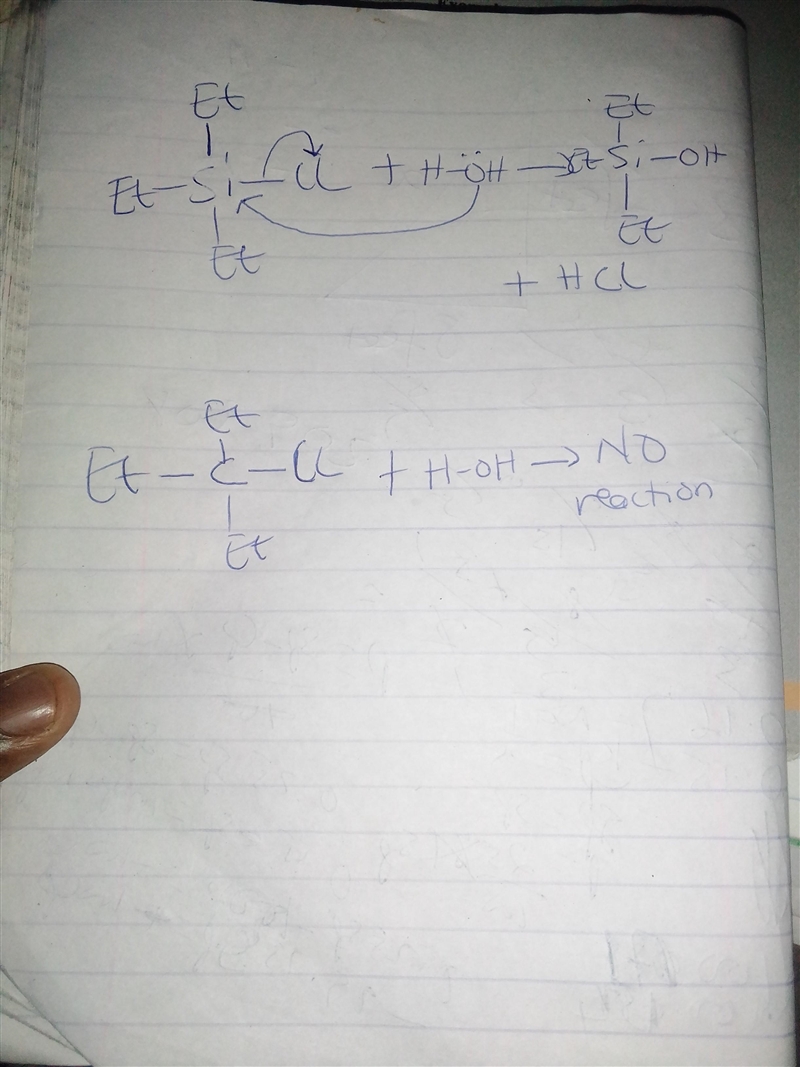 Et
Et-Si-Cl + H-ÖH → Et Si-OH
Et
Et
Et
+ HCl
Et
Et-C-Cl + H-OH → NO
reaction
Et